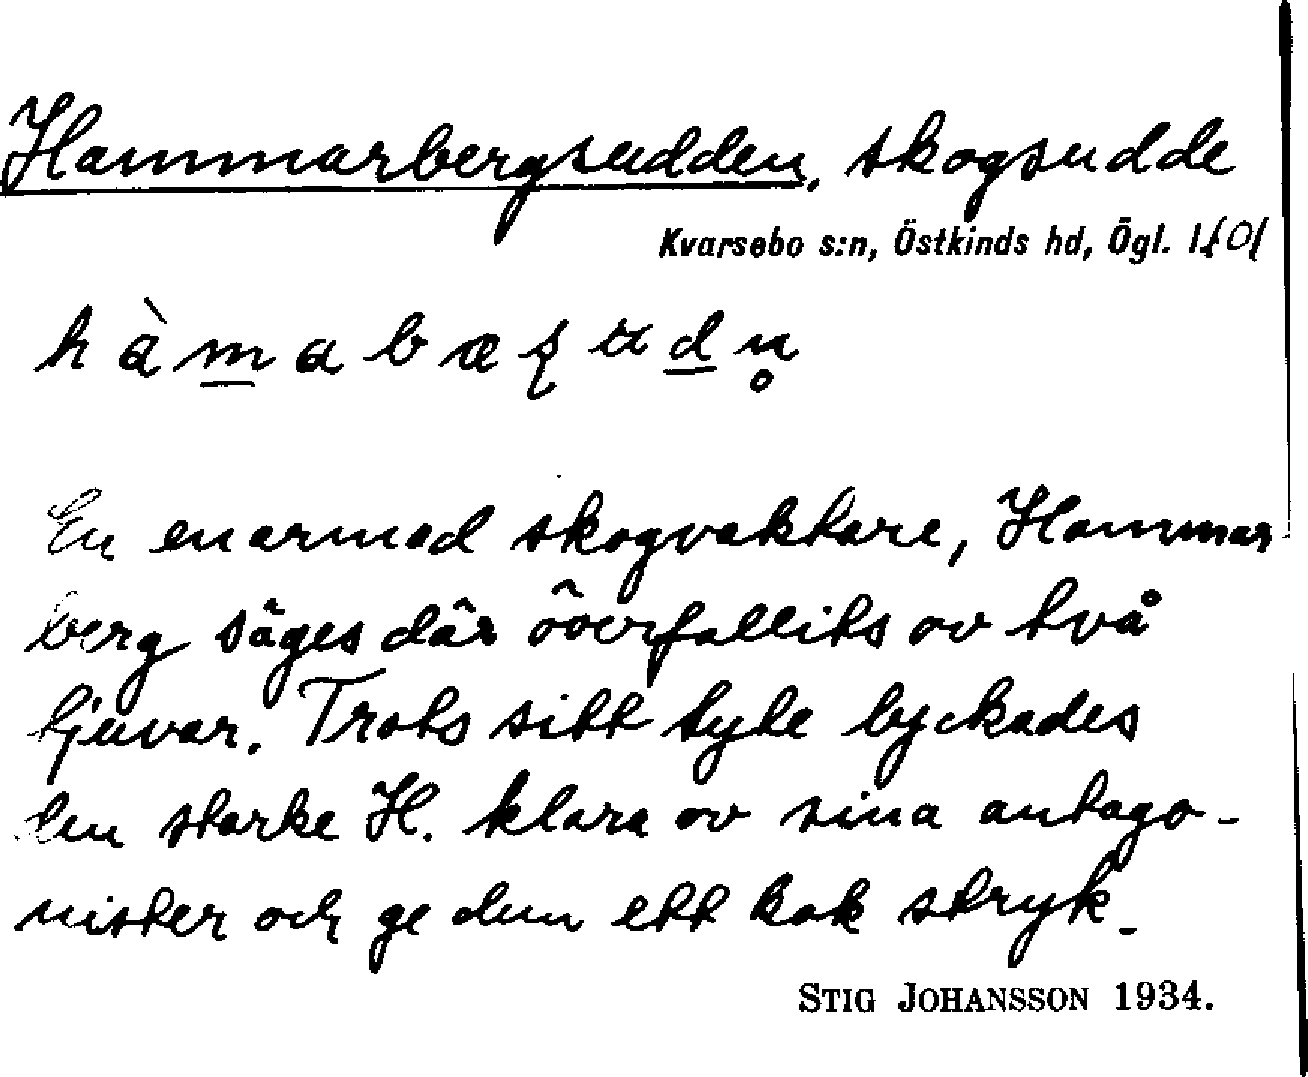 Hammarbergsudden, skogsudde
Kvarsebo s:n, Östkinds hd, Ögl.
En enarmad skogvaktare, Hammar
berg säges där överfallits av två
tjuvar. Trots sitt lyte lyckades
den starke H. klara av sina antago-
nister och ge dem ett kok stryk.
STIG JOHANSSON 1934.